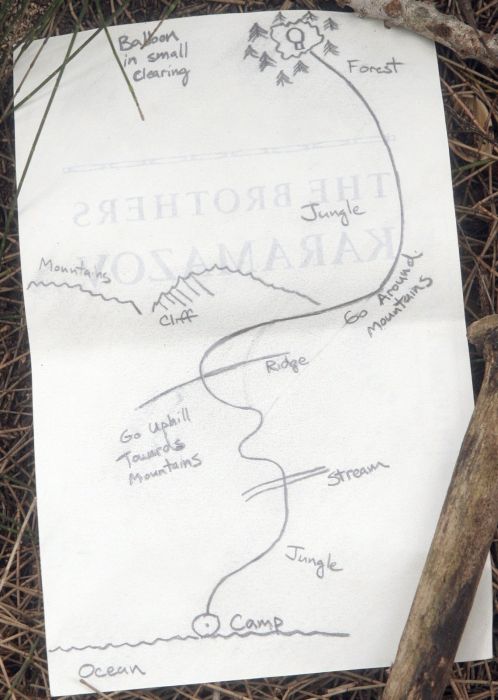 Balloon
in small
clearing
Forest
THE BROTHERS
Jungle
KARAMAZOV
Mountains
Cliff
Go Around
Mountains
Ridge
Go Uphill
Towards
Mountains
Stream
Jungle
Camp
Ocean